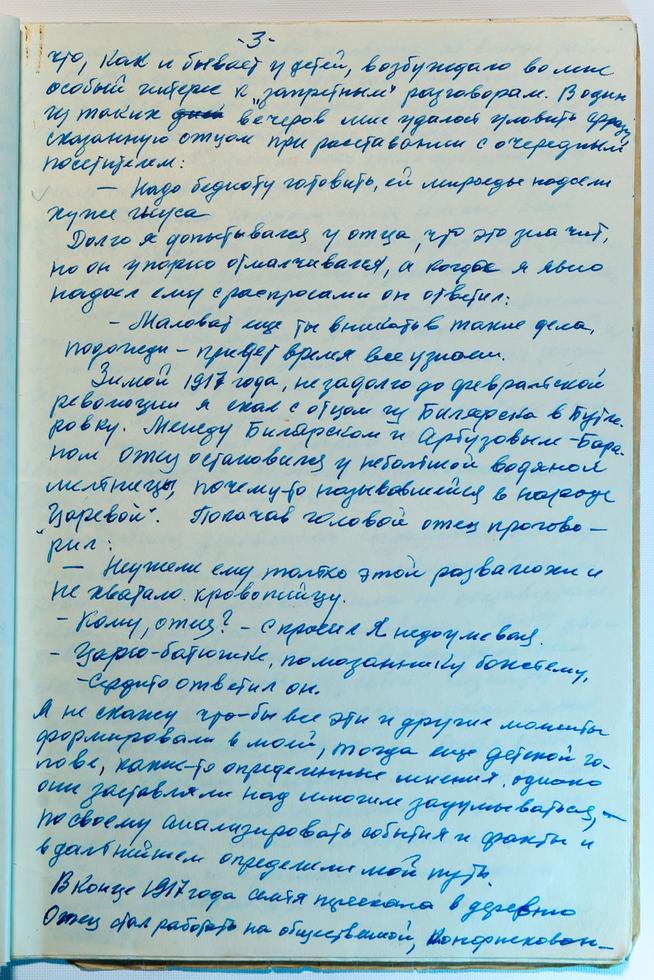 -3-
что, как и бывает у детей, возбуждало во мне
особый интерес к "запретным" разговорам. В один
из таких дней вечеров мне удалось уловить фразу
сказанную отцом при расставании с очередным
посетителем:
— Надо бедноту готовить, ей мироеды надоели
хуже гнуса
Долго я допытывался у отца, что это значит,
но он упорно отмалчивался, а когда я явно
надоел ему с распросами он ответил:
— Маловат еще ты вникать в такие дела,
подожди – придет время все узнаеш.
Зимой 1917 года, не задолго до февральской
революции я ехал с отцом из Билярска в Бутле-
ровку. Между Билярском и Арбузовым-Бара-
ном отец остановился у небольшой водяной
мельницы, почему-то называвшейся в народе
"Царевой". Покачав головой отец прогово-
рил:
— Неужели ему только этой развалюхи и
не хватало. кровопийцу.
- Кому, отец? - спросил я недоумевая.
- Царю-батюшке, помазаннику божьему,
- сердито ответил он.
Я не скажу что-бы все эти и другие моменты
формировали в моей, тогда еще детской го-
лове, какие-то определенные мнения, однако
они заставляли над многим задумываться, —
по своему анализировать события и факты и
в дальнейшем определили мой путь.
В конце 1917 года семья приехала в деревню
Отец стал работать на общественной, конфискован-